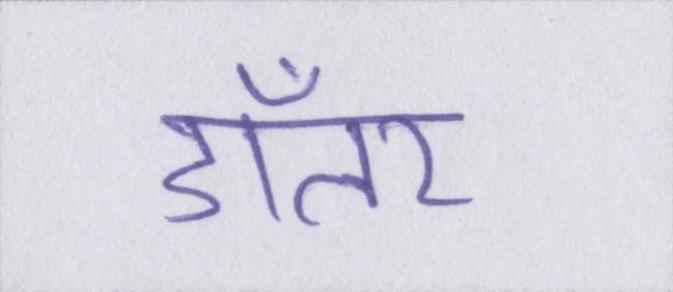 डाँलर